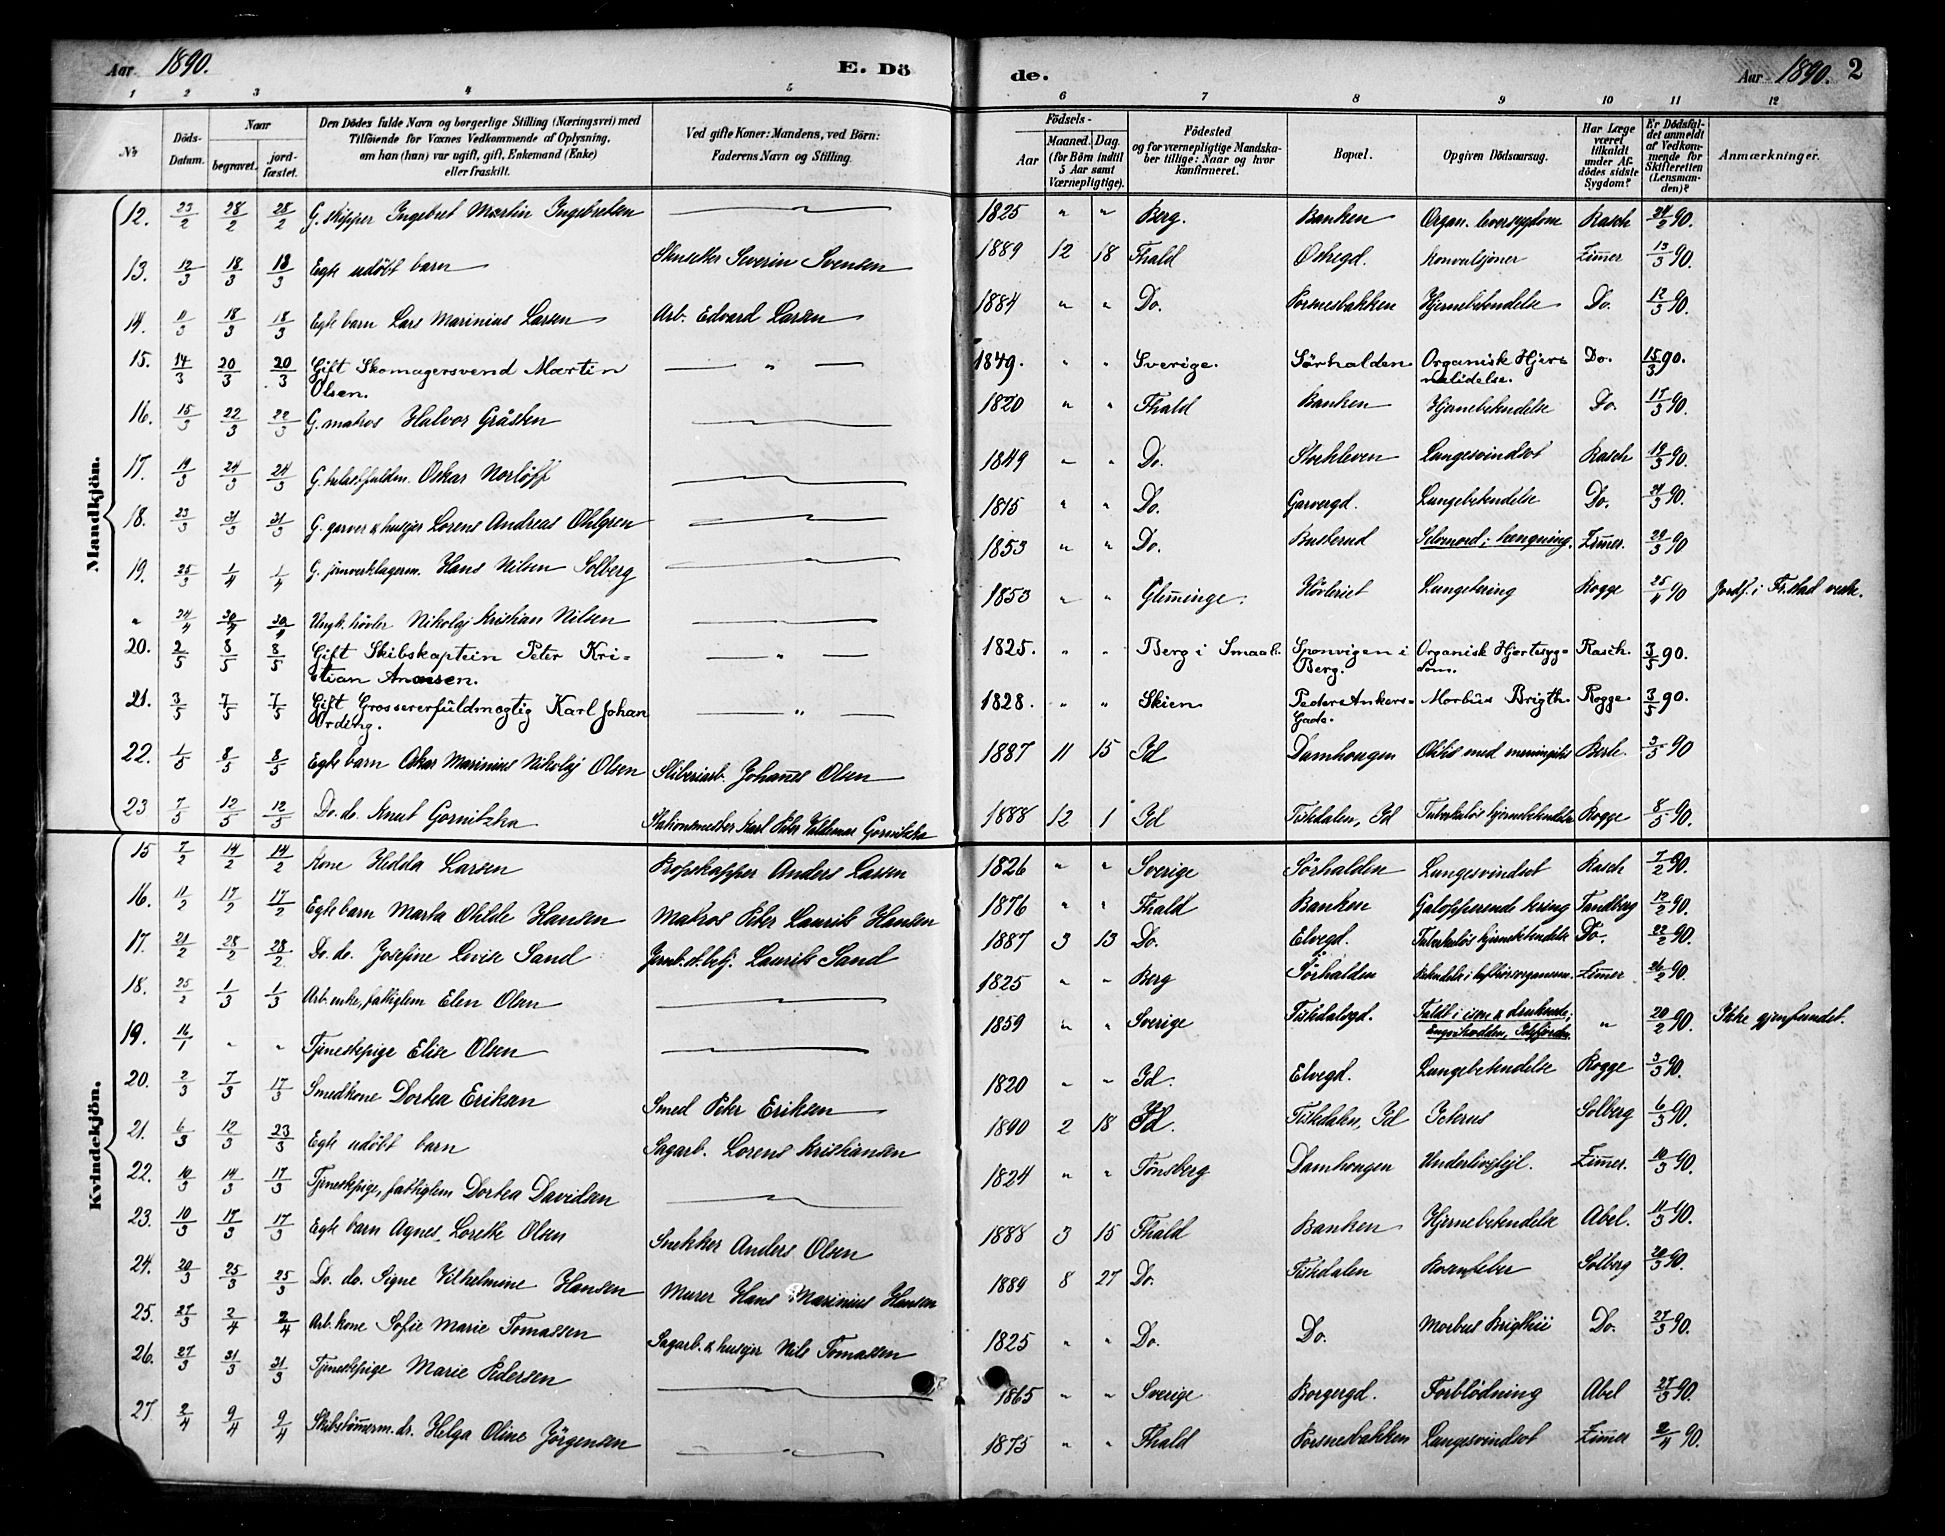 Aar 1890.
E. Dö
de.
Aar 1890. 2
1 2 3 4 5 6 7 8 9 10 11 12
No
Döds-Datum.
Naar
begravet.
jord-fæstet.
Den Dödes fulde Navn og borgerlige Stilling (Næringsvei) med
Tilföiende for Voxnes Vedkommende af Oplysning,
om han (hun) var ugift, gift, Enkemand (Enke)
eller fraskilt.
Ved gifte Koner: Mandens, ved Börn:
Faderens Navn og Stilling.
Födsels-
Aar
Maaned. Dag.
(for Börn indtil
5 Aar samt
Værnepligtige).
Födested
og for værnepligtige Mandska-
ber tillige: Naar og hvor
konfirmeret.
Bopæl.
Opgiven Dödsaarsag.
Har Læge
været
tilkaldt
under Af-
dödes sidste
Sygdom?
Er Dödsfal-
det anmeldt
af Vedkom-
mende for
Skifteretten
(Lensman-
den)?
Anmærkninger.
Mandkjön.
12. 23/2 28/2 28/2 G. skipper Ingebret Martin Ingebretsen 1825 " " Berg. Banken Organ. leversygdom Rasch 24/2 90.
13. 12/3 18/3 18/3 Egte udøbt barn Severin Svensen 1889 12 18 Fhald Ostregd. Konvulsjoner Zimer 13/3 90.
14. 11/3 18/3 18/3 Egte barn Lars Marinius Larsen Arb. Edvard Larsen 1884 " " Do. Porsnesbakken Hjernebetendelse Do. 12/3 90.
15. 14/3 20/3 20/3 Gift Skomagersvend Martin " 1849. " " Sverige. Sørhalden. Organisk Hjer- Do. 15/3 90.
Olsen. nelidelse.
16. 15/3 22/3 22/3 G. matros Halvor Gråsten 1820 " " Fhald Banken Hjernebetendelse Do. 17/3 90.
17. 19/3 24/3 24/3 Oskar Norløff 1849 " " Do. Stockleven Lungesvindsot Rasch 19/3 90.
18. 23/3 31/3 31/3 G. garver & husejer Lorens Andreas Ohlgren 1815 " " Do. Garvergd. Lungebetendelse Do. 24/3 90.
19. 25/3 1/4 1/4 G. jernverklagerm. Hans Nilsen Solberg 1853 " " Do. Busterud Selvmord; hængning. Zimer. 29/3 90
" 24/4 30/4 30/4 Ungk. høvler Nikolaj Kristian Nilsen 1853 " " Gleminge. Høvleriet Lungetæring Rogge 25/4 90 Jordf. i Fr.stad
20. 2/5 8/5 8/5 Gift Skibskaptein Peter Kri- " 1825. " " Berg i Smaal. Sponvigen i Organisk Hjertesyg- Rasch. 3/5 90.
stian Anonsen. Berg. dom.
21. 3/5 7/5 7/5 Gift Grossererfuldmægtig Karl Johan " 1828. " " Skien Peder Ankers- Morbus Brigth. Rogge. 3/5 90.
Ording. Gade.
22. 1/5 8/5 8/5 Egte barn Oskar Marinius Nikolaj Olsen Sliberiarb. Johannes Olsen 1887 11 15 Id Damhougen Otitis med meningitis Berle. 3/5 90
23 7/5 12/5 12/5 Do. do. Knut Gornitzka Stationsmester Karl Peter Valdemar Gornitzka 1888 12 1 Id Tistedalen, Id Tuberkuløs hjernebetendelse Rogge 8/5 90.
Kvindekjön.
15 7/2 14/2 14/2 Kone Hedda Larsen Kopskapper Anders Larsen 1826 " " Sverige Sørhalden Lungesvindsot Rasch 7/2 90.
16. 11/2 17/2 17/2 Egte barn Marta Otilde Hansen Matros Peter Laurits Hansen 1876 " " Fhald Banken Galopperende tæring Tandberg 12/2 90.
17. 21/2 28/2 28/2 Do. do. Josefine Lovise Sand Jernb. Laurits Sand 1887 3 13 Do. Elvegd. Tuberkuløs hjernebetendelse Do. 22/2 90.
18. 25/2 1/3 1/3 Arb. enke, fattiglem Elen Olsen 1825 " " Berg Sørhalden Betendelse i luftrørsorganerne. Zimer 26/2 90.
19. 16/1 " " Tjenestepige Elise Olsen 1859 " " Sverige Tistedalsgd. Faldt i isen & druknede; " 20/2 90. Ikke gjenfundet.
Idefjorden.
20. 2/3 7/3 17/3 Smedkone Dortea Eriksen Smed Peter Eriksen 1820 " " Id. Elvegd. Lungebetendelse Rogge 3/3 90.
21. 6/3 12/3 23/3 Egte udøbt barn Sagarb. Lorens Kristiansen 1890 2 18 Id. Tistedalen, Id Icterus Solberg 6/3 90.
22. 10/3 14/3 17/3 Tjenestepige, fattiglem Dortea Davidsen 1824 " " Tønsberg Damhougen Underlivsfejl. Zimer. 10/3 90.
23. 10/3 17/3 17/3 Egte barn Agnes Lorette Olsen Snekker Anders Olsen 1888 3 15 Fhald Banken Hjernebetendelse Abel. 11/3 90.
24. 20/3 25/3 25/3 Do. do. Signe Vilhelmine Hansen Murer Hans Marinius Hansen 1889 8 27 Do. Tistedalen Rosenfeber Solberg 20/3 90.
25. 27/3 2/4 2/4 Arb. kone Sofie Marie Tomassen Sagarb. & husejer Nils Tomassen 1825 " " Do. Do. Morbus Brigthii Do. 27/3 90.
26. 27/3 31/3 31/3 Tjenestepige Marie Pedersen 1865 " " Sverige Borgergd. Forblødning Abel 27/3 90.
27 2/4 9/4 9/4 Skibstømmerm. dr. Helga Oline Jørgensen 1875 " " Fhald Porsnesbakken Lungesvindsot Zimer 2/4 90.